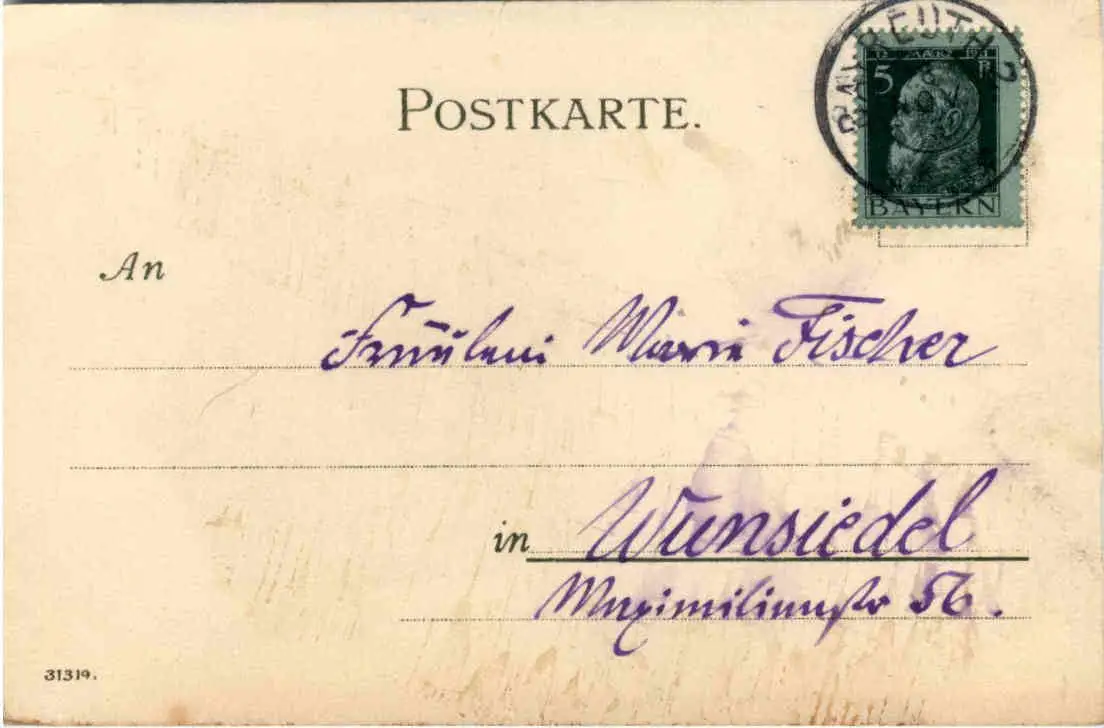 BAYREUTH 2
12 MÄRZ 1911
5 Pf
BAYERN
POSTKARTE.
An
Fräulein Marie Fischer
in Wunsiedel
Maximilianstr 56.
31319.